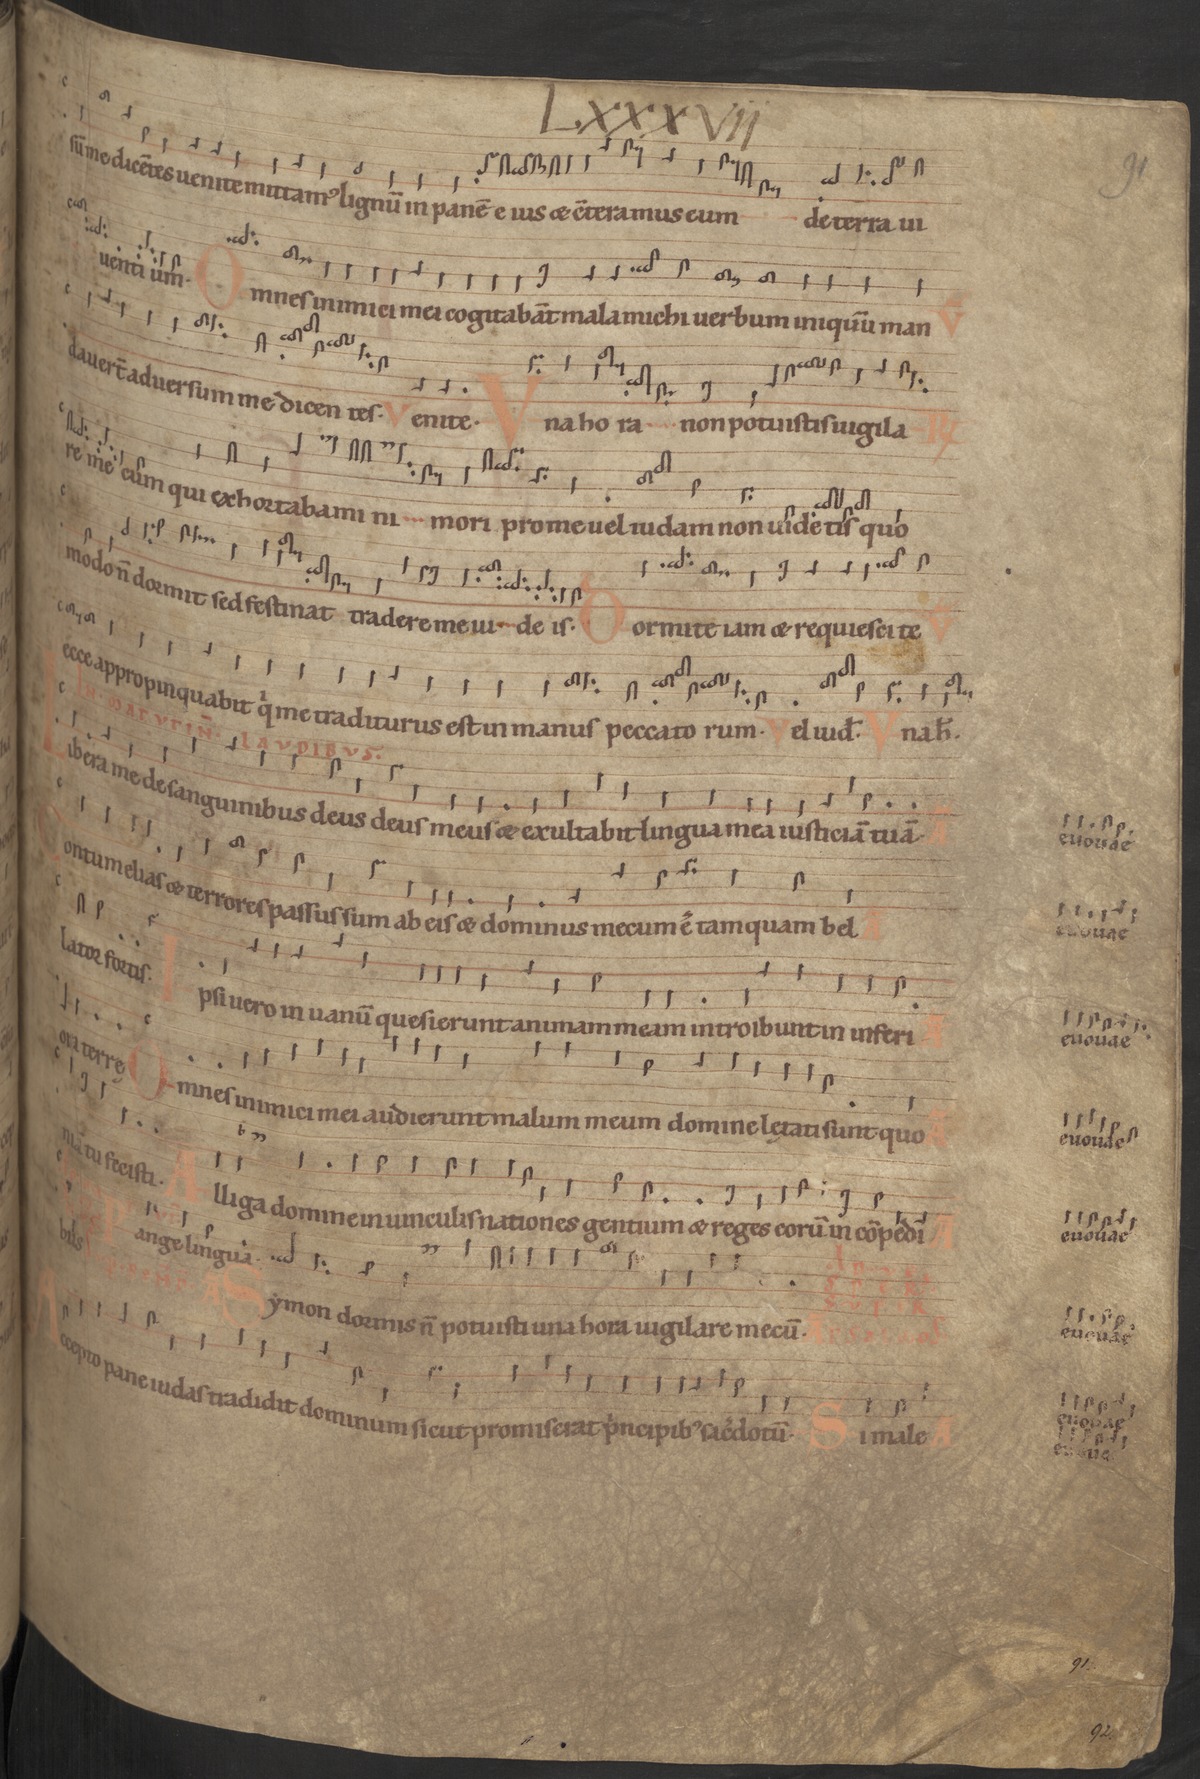 LXXXVII
91
sū me dicētes uenite mittam᷒ lignū in panē e ius & ēteramus eum de terra ui
uenti um· Omnes inimici mei cogitabāt mala michi uerbum iniquū man V̄
dauer̄t aduersum me dicen tes· Venite· Una ho ra non potuistis uigila R̸
re me cum qui exhortabami ni mori pro me uel iudam non uide tis quo
modo n̄ dormit sed festinat tradere me iu de is· Dormite iam & requiescite V̄
ecce appropinquabit q̇ me traditurus est in manus peccato rum· Vel iud̄· V na h̄·
IN MATUTIN̄· LAUDIBUS·
Libera me de sanguinibus deus deus meus & exultabit lingua mea iusticiā tuā· A
euouae
Contumelias & terrores passus sum ab eis & dominus mecum ē tamquam bel A
euouae
lator fortis· Ipsi uero in uanū quesierunt animam meam introibunt in inferi A
euouae
ora terrę Omnes inimici mei audierunt malum meum domine lętati sunt quo A
euouae
niā tu fecisti· Alliga domine in uinculis nationes gentium & reges eorū in cōpedi A
euouae
bus Pange lingua· Symon dormis n̄ potuisti una hora uigilare mecū·
euouae
Accepto pane iudas tradidit dominum sicut promiserat p̄ncipib᷒ sacēdotū· Si male A
euouae
euouae
91.
92.